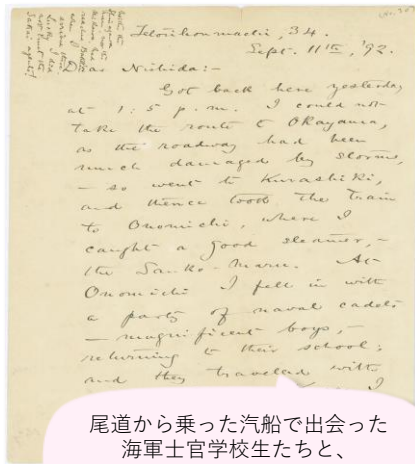 Tetorihonmachi, 34.
Sept. 11th, '92.
Dear Nishida:-
Got back here yesterday
at 1:5 p.m. I could not
take the route to Okayama,
as the roadway had been
much damaged by storms,
- so went to Kurashiki,
and thence took the train
to Onomichi, where I
caught a good steamer, -
the Sanko-Maru. At
Onomichi I fell in with
a party of naval cadets
- magnificent boys, -
returning to their school;
and they travelled with
I
尾道から乗った汽船で出会った
海軍士官学校生たちと、